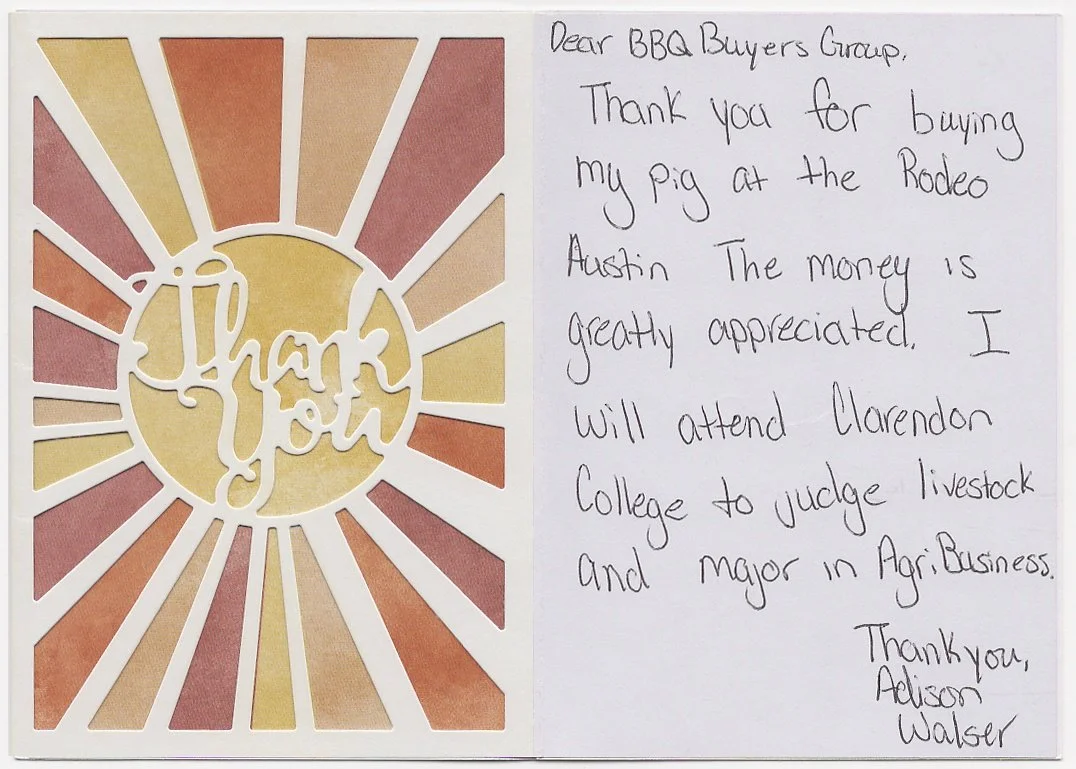 Thank
You
Dear BBQ Buyers Group,
Thank you for buying
my pig at the Rodeo
Austin The money is
greatly appreciated. I
will attend Clarendon
College to judge livestock
and major in Agri.Business.
Thank you,
Adison
Walser